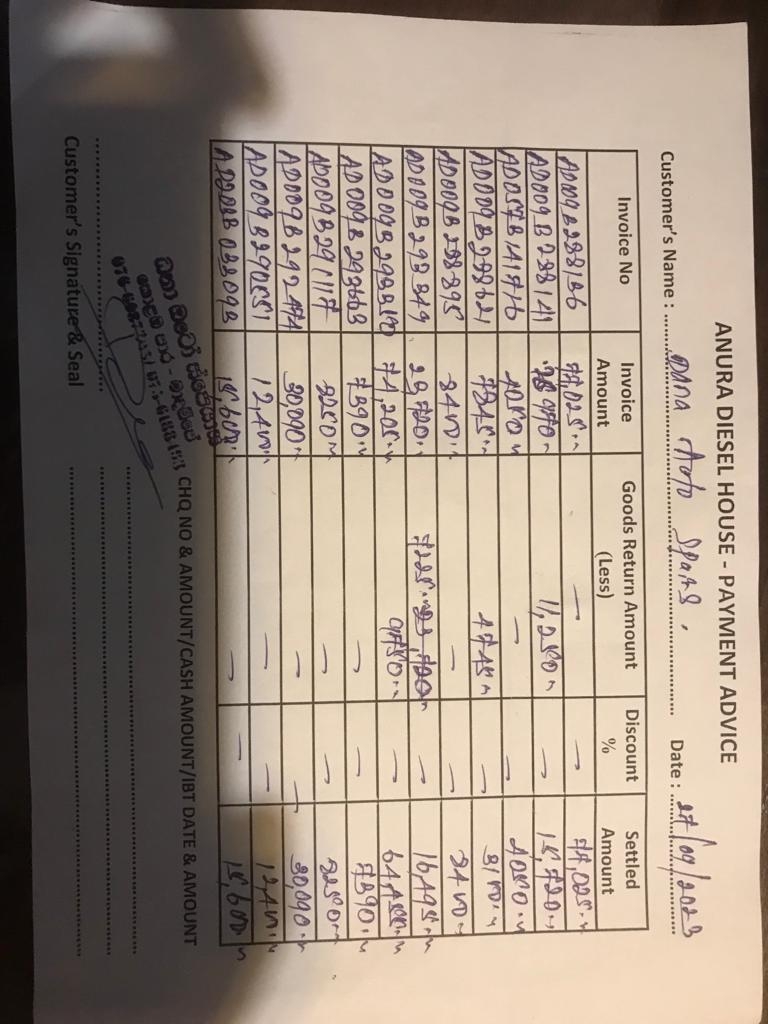 ANURA DIESEL HOUSE - PAYMENT ADVICE
Customer's Name : Dana Auto Spares. Date : 27/09/2023
Invoice No Invoice Amount Goods Return Amount (Less) Discount % Settled Amount
AD009B288136 77,025.. — — 77,025..
AD009B288141 11,250.. — 15,720..
AD057B141716 4050.. — — 4050..
AD009B288621 7845.. 4745.. — 3100..
AD009B288895 3400.. — — 3400..
AD009B293349 23,720.. 7225.. — 16,495..
74,205.. 9750.. — 64,455..
AD009B293663 7390.. — — 7390..
AD009B291117 3250.. — — 3250..
AD009B292474 30,090.. — — 30,090..
AD009B290551 12,400.. — — 12,400..
15,600.. — — 15,600..
CHQ NO & AMOUNT/CASH AMOUNT/IBT DATE & AMOUNT
Customer's Signature & Seal